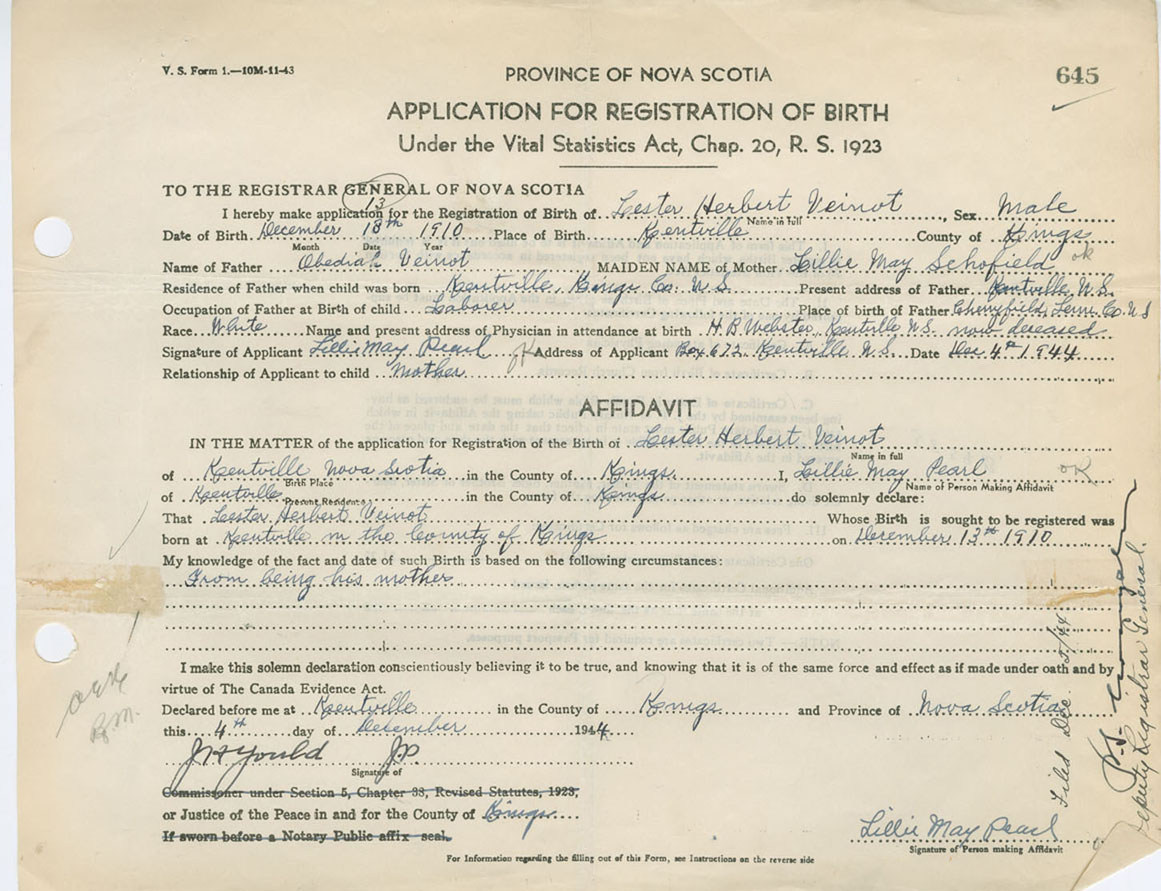 V. S. Form 1.—10M-11-43
PROVINCE OF NOVA SCOTIA
645
APPLICATION FOR REGISTRATION OF BIRTH
Under the Vital Statistics Act, Chap. 20, R. S. 1923
TO THE REGISTRAR GENERAL OF NOVA SCOTIA
13
I hereby make application for the Registration of Birth of Lester Herbert Veinot, Sex Male
Name in full
Date of Birth December 18th 1910 Place of Birth Kentville County of Kings
Month Date Year
ok
Name of Father Obediah Veinot MAIDEN NAME of Mother Lillie May Schofield
Residence of Father when child was born Kentville, Kings Co. N.S. Present address of Father Kentville N.S.
Occupation of Father at Birth of child Laborer Place of birth of Father Co. N.S
Race White Name and present address of Physician in attendance at birth H B Webster, Kentville N.S. now deceased
Signature of Applicant Lillie May Pearl OK Address of Applicant Box 672 Kentville N.S. Date Dec 4th 1944
Relationship of Applicant to child Mother
AFFIDAVIT
IN THE MATTER of the application for Registration of the Birth of Lester Herbert Veinot
Name in full
of Kentville Nova Scotia in the County of Kings I, Lillie May Pearl OK
Birth Place Name of Person Making Affidavit
of Kentville in the County of Kings do solemnly declare:
Present Residence
That Lester Herbert Veinot Whose Birth is sought to be registered was
born at Kentville in the County of Kings on December 13th 1910
My knowledge of the fact and date of such Birth is based on the following circumstances:
From being his mother
I make this solemn declaration conscientiously believing it to be true, and knowing that it is of the same force and effect as if made under oath and by
virtue of The Canada Evidence Act.
Declared before me at Kentville in the County of Kings and Province of Nova Scotia
this 4th day of December 1944
J.P.
Signature of
Commissoner under Section 5, Chapter 33, Revised Statutes, 1923,
or Justice of the Peace in and for the County of Kings
If sworn before a Notary Public affix seal.
Lillie May Pearl
Signature of Person making Affidavit
For Information regarding the filling out of this Form, see Instructions on the reverse side
B.M.
Filed Dec 5/44
Deputy Registrar General.